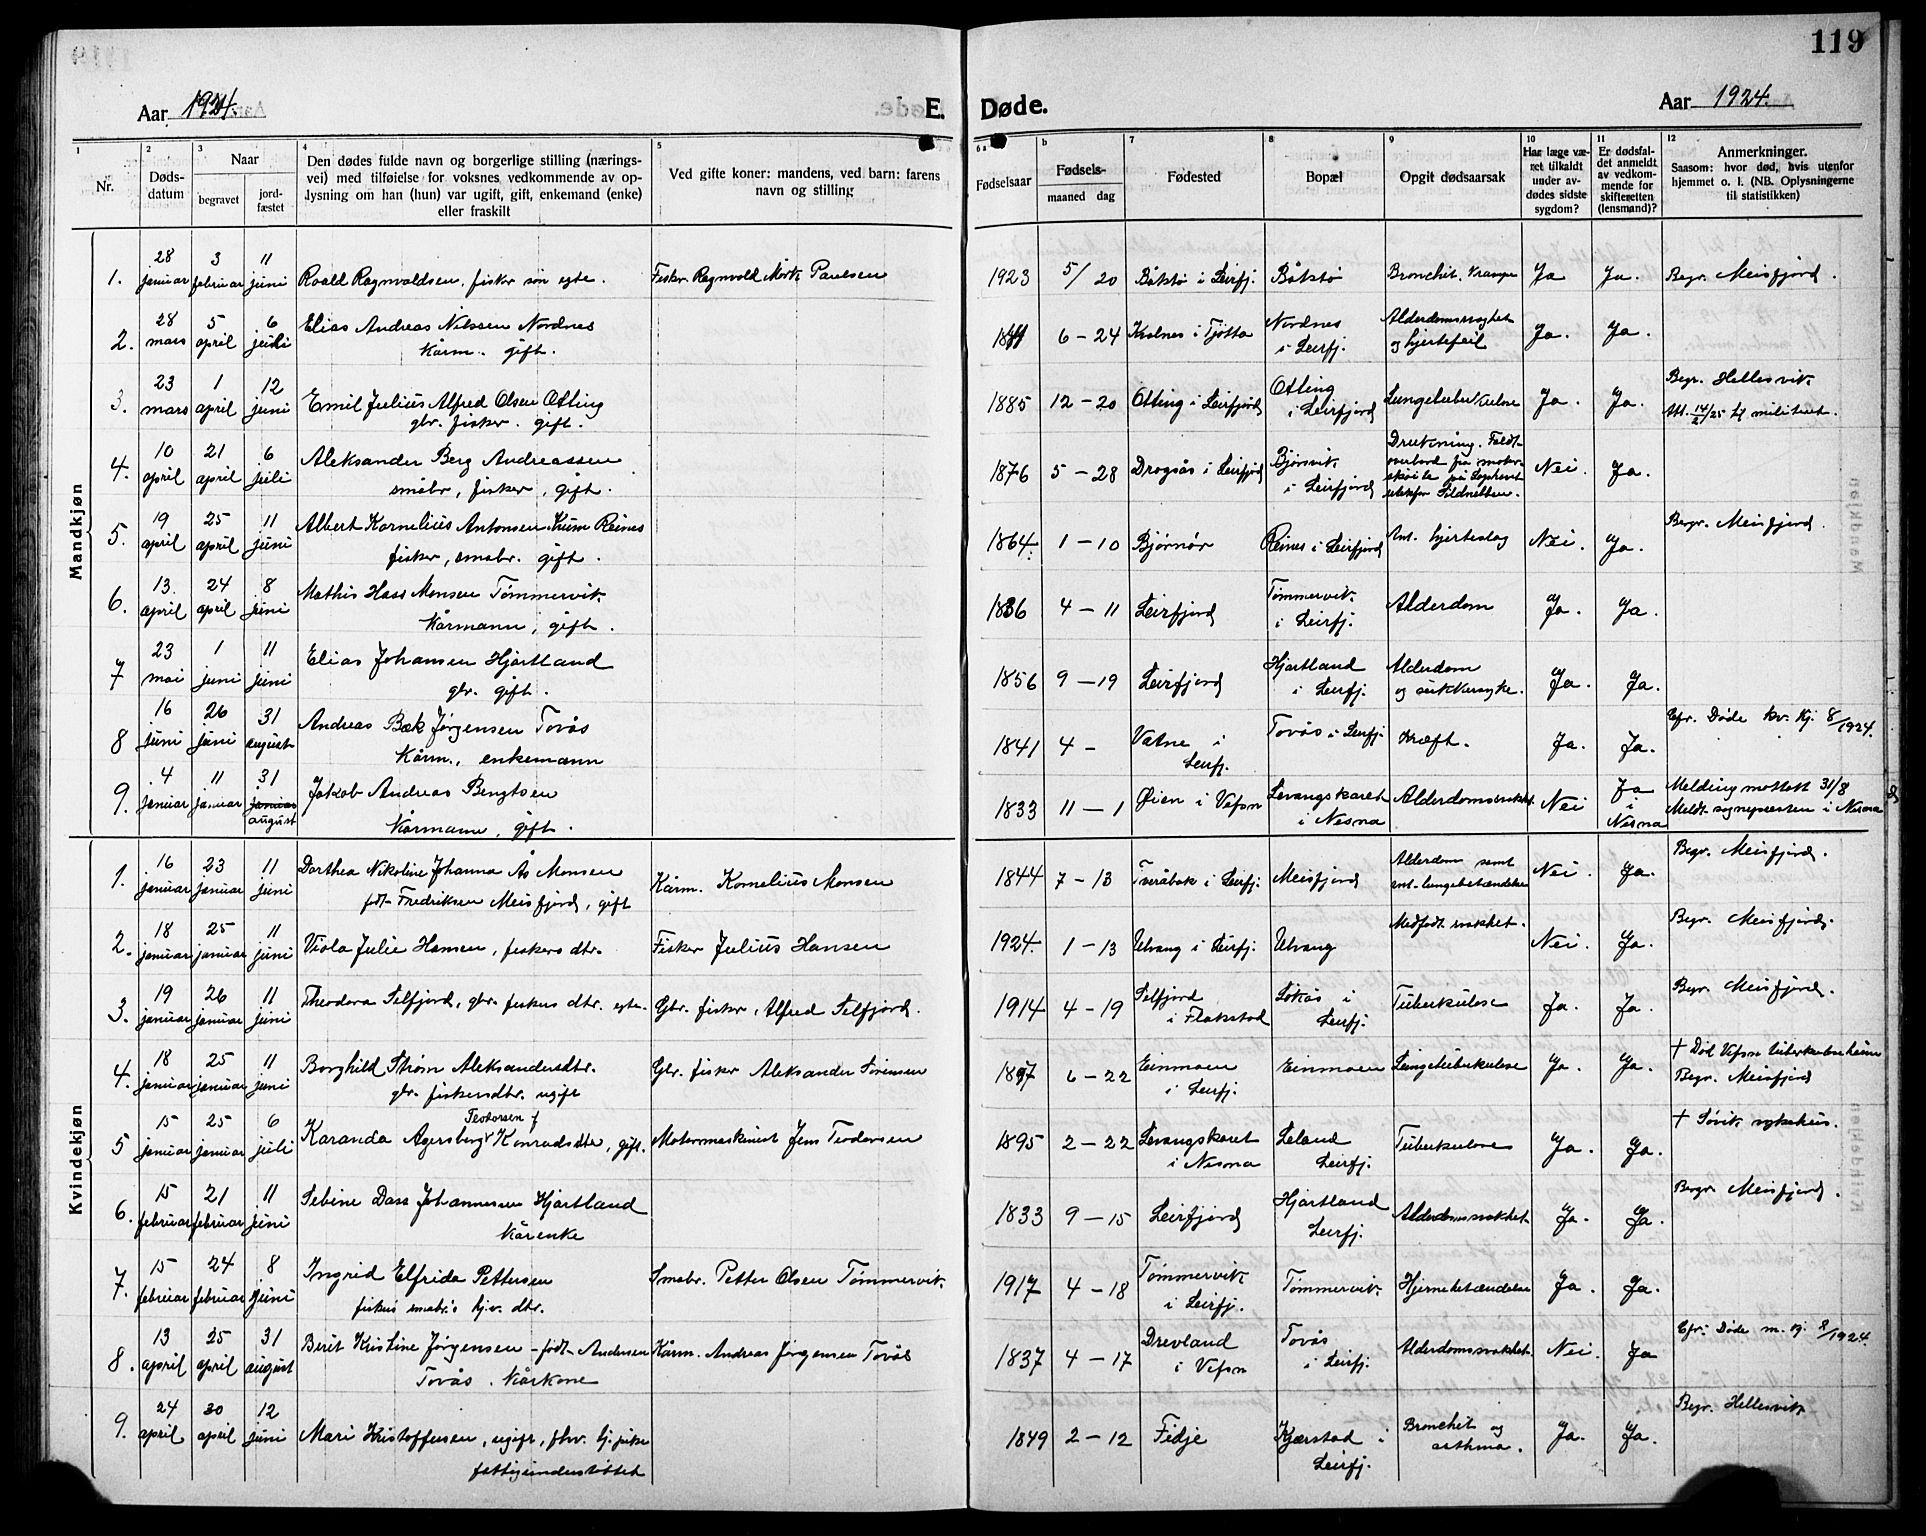 119
Aar 1924.
E. Døde.
Aar 1924.
1 2 3 4 5 6 a b 7 8 9 10 11 12
Nr.
Døds-
datum
Naar
begravet
jord-
fæstet
Den dødes fulde navn og borgerlige stilling (nærings-
vei) med tilføielse for voksnes vedkommende av op-
lysning om han (hun) var ugift, gift, enkemand (enke)
eller fraskilt
Ved gifte koner: mandens, ved barn: farens
navn og stilling
Fødselsaar
Fødsels-
maaned dag
Fødested
Bopæl
Opgit dødsaarsak
Har læge væ-
ret tilkaldt
under av-
dødes sidste
sygdom?
Er dødsfal-
det anmeldt
av vedkom-
mende for
skifteretten
(lensmand)?
Anmerkninger.
Saasom: hvor død, hvis utenfor
hjemmet o. l. (NB. Oplysningerne
til statistikken)
Mandkjøn
28 3 11
1. januar februar juni Roald Ragnvaldsen, fisker søn egte. Fisker Ragnvald Mørk Paulsen 1923 5/20 Båtstø i Leirfj. Båtstø Bronchit, Krampe Ja Ja. Begr. Meisfjord.
28 5 6 Elias Andreas Nilssen Nordnes Nordnes Alderdomssvaghet
2. mars april juli Kårm. gift. 6-24 i Tjøtta i Leirfj. og hjertefeil Ja. Ja.
23 1 12 Otting Begr. Hellesvik
3. mars april juni Emil Julius Alfred Olsen Otting 1885 12-20 Otting i Leirfjord i Leirfjord Lungetuberkulose Ja. Ja. Att. 14/2 25 til militæret.
gbr. fisker. gift.
10 21 6 Aleksander Berg Andreassen Drukning. Faldt
4. april april juli småbr, fisker, gift. 1876 5-28 Dragsås i Leirfjord Bjørsvik i Leirfjord overbord fra motor-
skøite på Sildnebben. Nei. Ja.
19 25 11 Albert Kornelius Antonsen Reines Begr. Meisfjord.
5. april april juni fisker, småbr. gift. 1864. 1-10 Bjørnør Reines i Leirfjord Ant. hjerteslag Nei. Ja.
13. 24 8 Mathis Hass Monsen Tømmervik. Tømmervik.
6. april april juni Kårmann, gift. 1836 4-11 Leirfjord i Leirfj. Alderdom Ja. Ja.
23 1 11 Elias Johansen Hjartland Hjartland Alderdom
7 mai juni juni gbr. gift. 1856 9-19 Leirfjord i Leirfj. og sukkersyke. Ja. Ja.
16 26 31 Andreas Bæk Jørgensen Tovås Cfr. Døde kv. kj. 8/1924.
8 juni juni august Kårm., enkemann 1841 4- Vatne i Leirfj. Tovås i Leirfj. Kræft. Ja. Ja.
4 11 31 Jakob Andreas Bengtsen Ja Melding mottatt 31/8
9. januar januar januar 1833 11-1 Øien i Vefsn Levangskaret Alderdomssvakhet Nei i Meldt sognepresten i Nesna
august Kårmann, gift. i Nesna Nesna
Kvindekjøn
16 23 11 Dorthea Nikoline Johanna Ås Monsen Alderdom samt Begr. Meisfjord.
1. januar januar juni fdt Fredriksen Meisfjord, gift Kårm. Kornelius Monsen 1844 7-13 Tveråbak i Leirfj. Meisfjord ant. lungebetændelse Nei. Ja.
18 25 11 Medfødt svakhet. Begr. Meisfjord.
2. januar januar juni Viola Julie Hansen, fiskers dtr. Fisker Julius Hansen 1924. 1-13 Ulvang i Leirfj. Ulvang Nei. Ja.
19 26 11 Selfjord Begr. Meisfjord.
3. januar januar juni Theodora Selfjord, gbr. fiskers dtr. egte. Gbr. fisker, Alfred Selfjord. 1914 4-19 i Flakstad Løkås i Leirfj. Tuberkulose Ja. Ja.
18 25 11 Borghild Strøm Aleksandersdtr. † Død Vefsn tuberkulosehjem
4. januar januar juni gbr. fiskersdtr. ugift Gbr. fisker Aleksander Sørensen 1897 6-22 Einmoen i Leirfj. Einmoen Lungetuberkulose Ja. Ja. Begr. Meisfjord
15 25 6 Teodorsen f † Søvik sykehus.
5 januar januar juli Karanda Agersborg Konradsdtr, gift. Motormaskinist Jens Teodorsen 1895 2-22 Levangskaret i Nesna Leland Leirfj. Tuberkulose Ja. Ja.
15 21 11 Sebine Dass Johannessen Hjartland Hjartland Begr. Meisfjord.
6. februar februar juni Kårenke 1833 9-15 Leirfjord Leirfj. Alderdomssvakhet Ja. Ja.
15 24 8 Ingrid Elfrida Pettersen Tømmervik
7. februar februar juni fiskers småbr.s hjv. dtr. Småbr. Petter Olsen Tømmervik. 1917 4-18 i Leirfj. Tømmervik. Hjernebetændelse Ja. Ja.
13 25 31 Berit Kristine Jørgensen - født Andersen Drevland Tovås Cfr. Døde m. kj. 8/1924.
8. april april august Tovås. Kårkone Kårm. Andreas Jørgensen Tovås 1837 4-17 i Vefsn i Leirfj. Alderdomssvakhet. Nei. Ja
24 30 12 Begr. Hellesvik
9. april april juni Mari Kristoffersen, ugift, fattigunderstøttet 1849 2-12 Fidje Kjærstad i Leirfj. Bronchit og asthma. Ja. Ja.